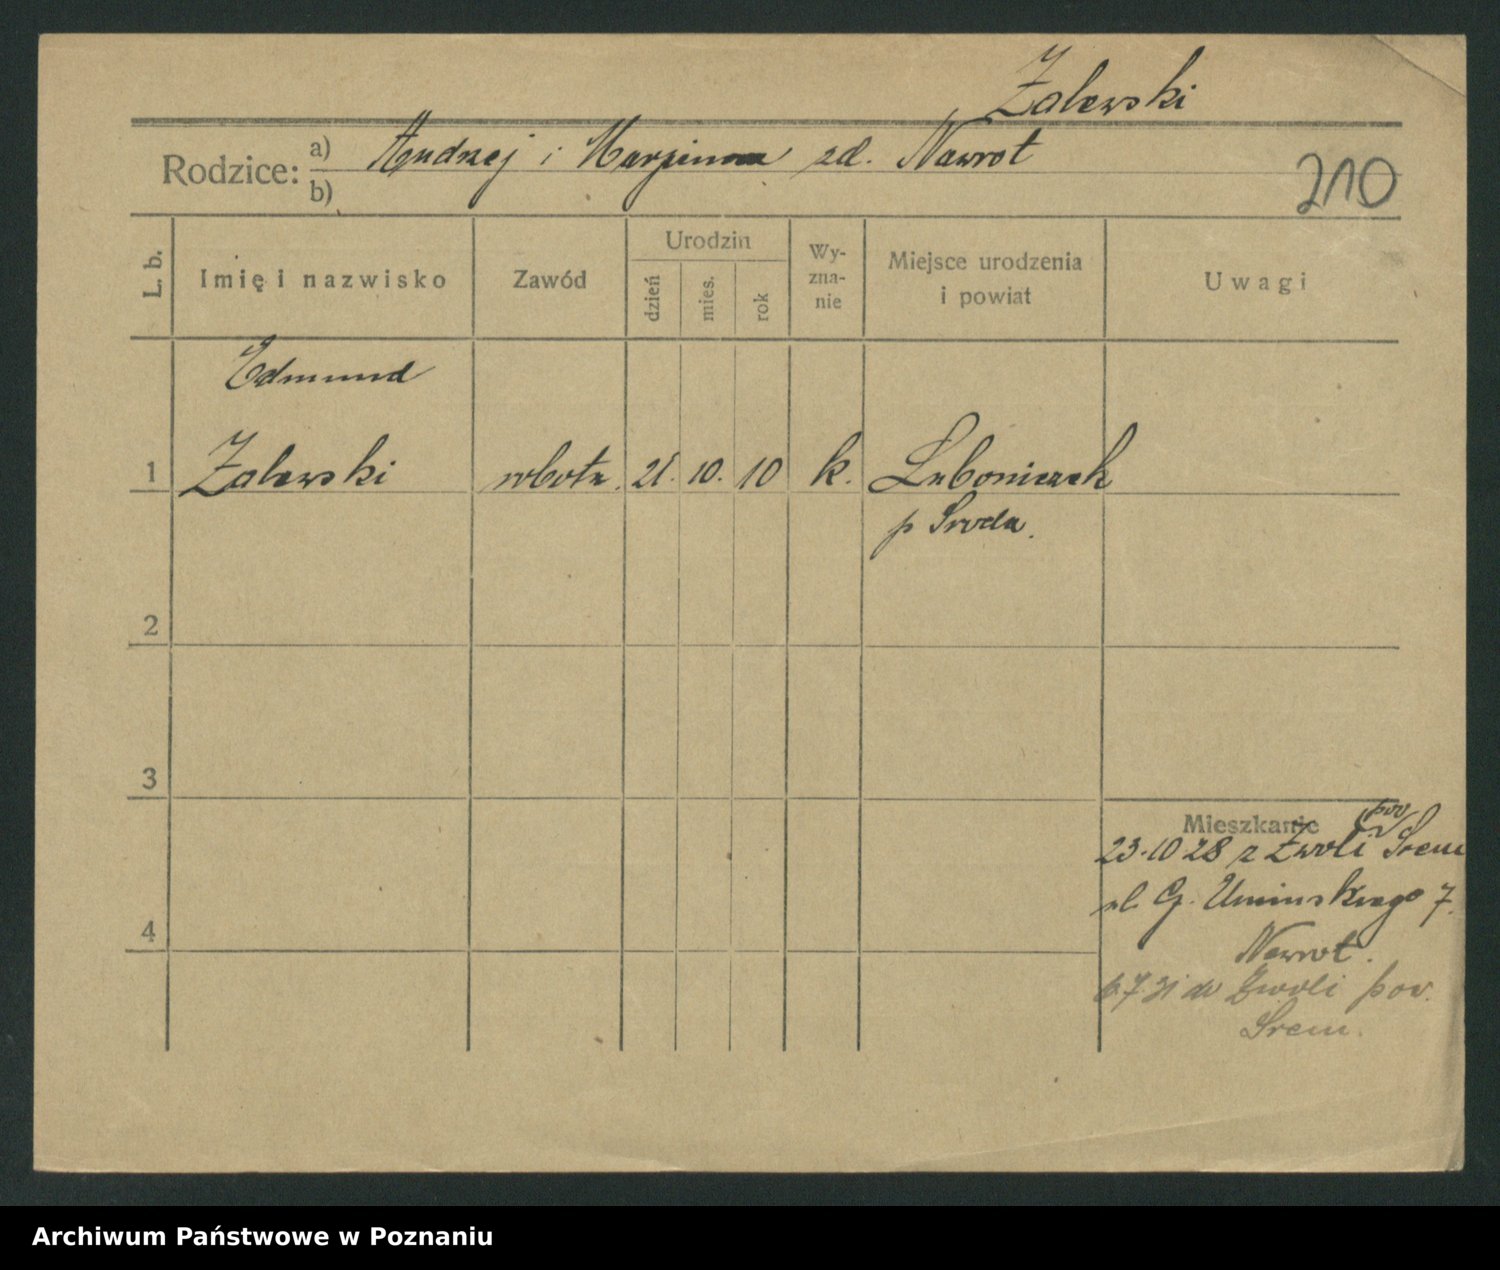 Zalewski
Rodzice: a) Andrzej i Marjanna zd. Nawrot
b)
210
L. b.
Imię i nazwisko
Zawód
Urodzin
dzień
mies.
rok
Wy-
zna-
nie
Miejsce urodzenia
i powiat
Uwagi
Edmund
1 Zalewski robotn. 21. 10. 10 k.
p Sroda.
2
3
4
Mieszkanie pow
23.10 28 z Zwoli Srem
ul. G. Uminskiego 7.
Nawrot.
6.7.31 do Zwoli pow.
Srem.
Archiwum Państwowe w Poznaniu